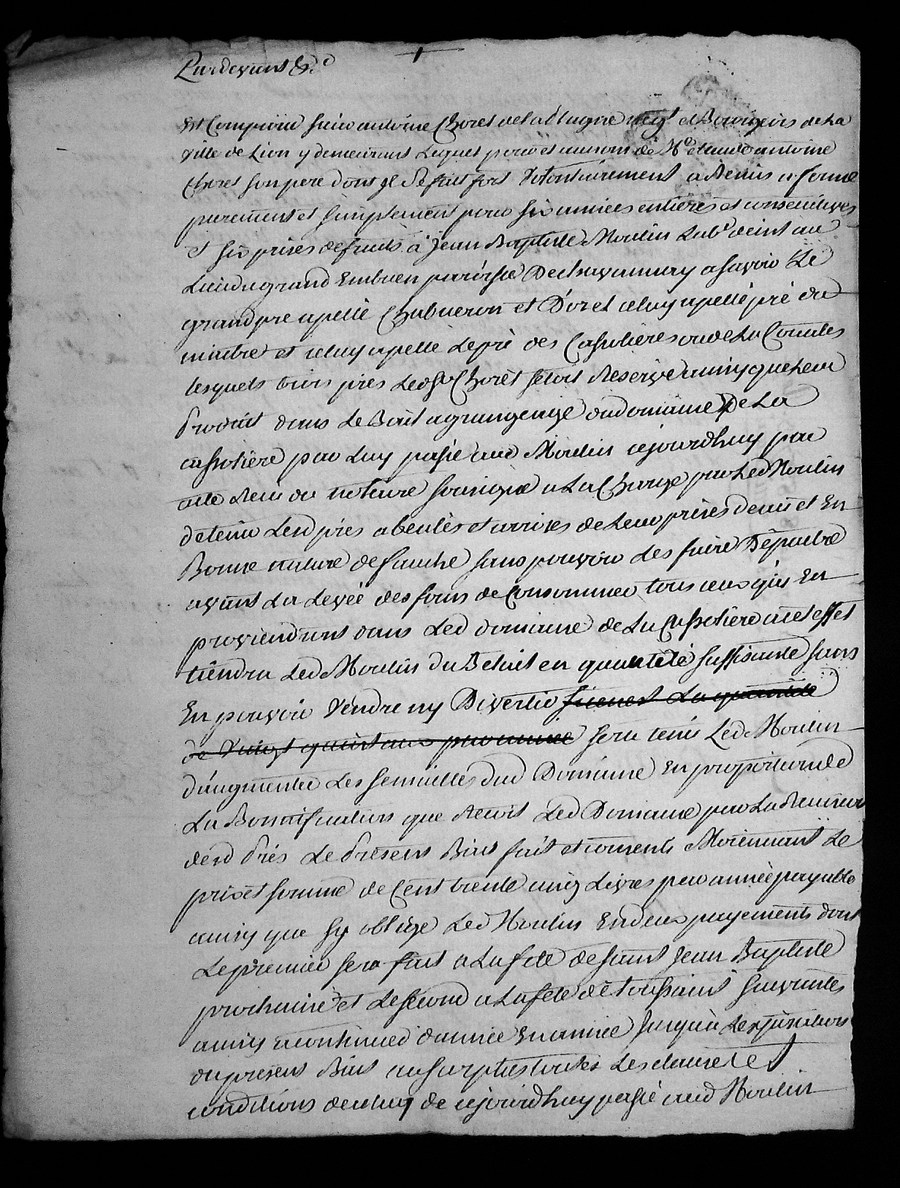 Pardevant &c
Est Comparu sieur antoine Choret de la Magne neg.t et Bourgeois de La
ville de Lion y demeurant Lequel pour et au nom de M.e claude antoine
Choret son pere dont jl se fait fort Volontairement a Remis a ferme
purement et simplement pour six années entieres et consecutives
et six prises de fruits à Jean Baptiste Moulin Lab.r de int au
Lieu du grand Embuen paroisse De chavannay a savoir Le
grand pre apellé Chabueron et D'oret celuy apellé pré du
nimbre et celuy apellé Le pré des Cassotieres ou de La Combe
lesquels trois prés Led. S.r Choret setoit Reservé ainsy que Leur
Produit dans Le Bail a grangeage du domaine De La
cassotiere par Luy passé aud Moulin cejourdhuy par
acte Recu du notaire soussigné a La Charge par Led Moulin
de tenir Lesd prés abeulés et arrosés de Leurs prises d'eau et En
Bonne nature de fauche sans pouvoir Les faire Depaitre
avant La Levée des foins de Consommer tous ceux qui En
proviendront dans Led domaine de La Cassotiere a cet effet
tiendra Led Moulin du Betail en quantité suffisante sans
En pouvoir Vendre ny Divertir La quantité
de Vaingt quintaux par année sera tenu Led Moulin
d'augmenter Les semailles dud Domaine En proportion de
La Bonnification que Recoit Led Domaine par La Reunion
desd Prés Le Present Bail fait et consenti Moiennant Le
prix et somme de Cent trente cinq Livres par année payable
ainsy que sy oblige Led Moulin En deux payements dont
Le premier sera fait a La fete de saint Jean Baptiste
prochaine et Le second a La fete de toussaint suivante
ainsy a continuer d'année En année jusqu'a Lexpiration
du present Bail au surplus toutes Les clauses et
conditions de celuy de cejourdhuy passé aud Moulin